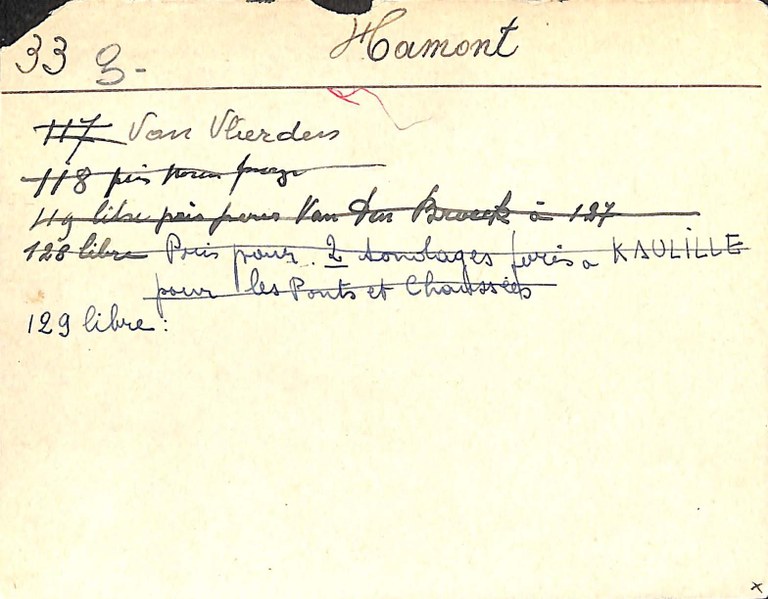 33 g- Hamont
117 Van Vlierden
118 pris pour
119 libre pris pour Van Den Broeck à 127
128 libre Pris pour 2 sondages forés a KAULILLE
pour les Ponts et Chaussées
129 libre:
x